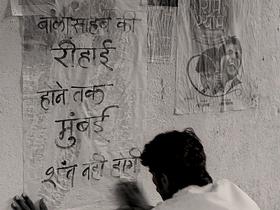 बालासाहब का
रीहाई
होने तक
मुंबई
शांत नही होगी